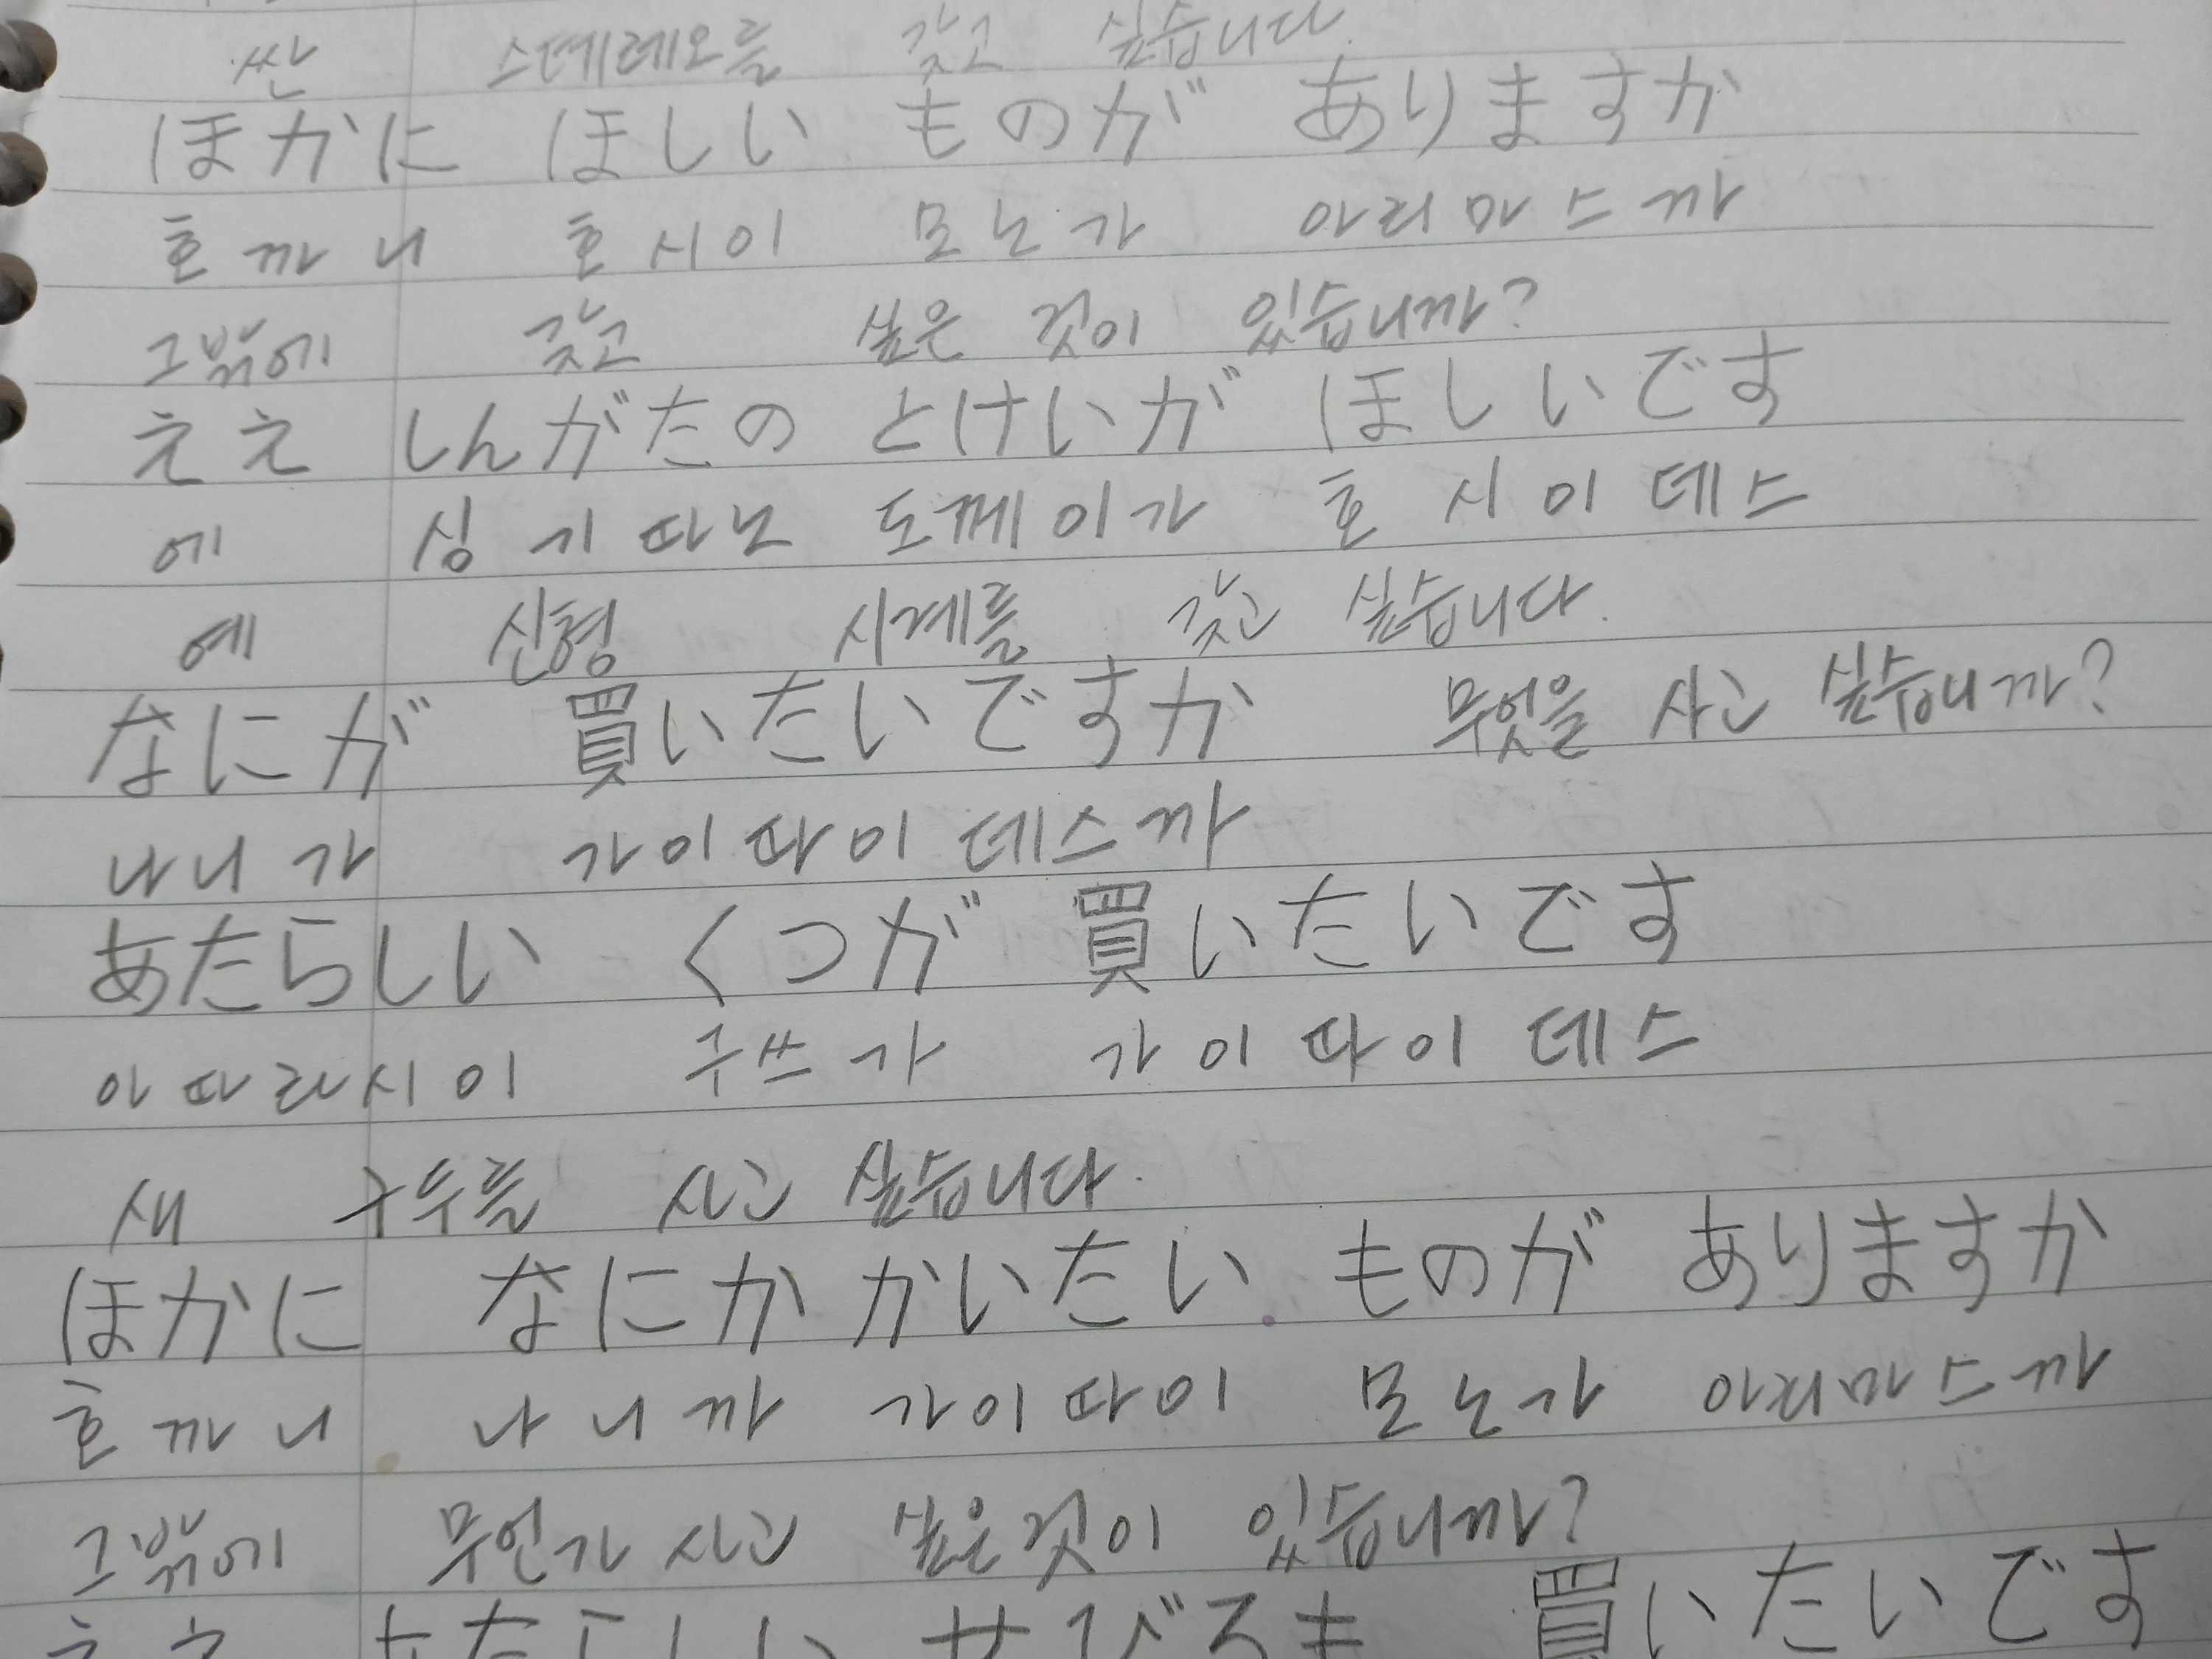 싼 스테레오를 갖고 싶습니다.
ほかに ほしい ものが ありますか
호까니 호시이 모노가 아리마스까
그밖에 갖고 싶은 것이 있습니까?
ええ しんがたの とけいが ほしいです
에 싱기따노 도께이가 호시이데스
예 신형 시계를 갖고 싶습니다.
なにが 買いたいですか 무엇을 사고 싶습니까?
나니가 가이따이데스까
あたらしい くつが 買いたいです
아따라시이 구쓰가 가이따이데스
새 구두를 사고 싶습니다.
ほかに なにか かいたい ものが ありますか
호까니 나니까 가이따이 모노가 아리마스까
그밖에 무언가 사고 싶은것이 있습니까?
ええ あたらしい せびろも 買いたいです